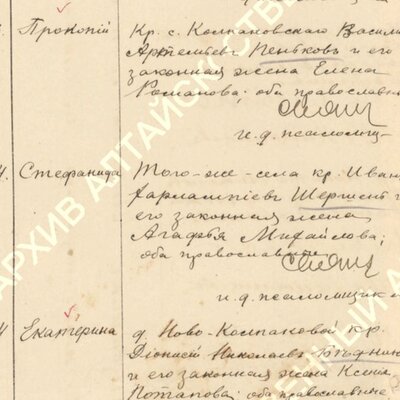 Прокопий
Кр. с. Колпаковскаго Васил
Артемьевъ Пеньковъ и его
законная жена Елена
Романова; оба православн
и. д. псаломщ
Стефанида
Того-же-села кр. Иван
Харлампіевъ Шершент
его законная жена
Агафья Михайлова;
оба православные
и. д. псаломщик
Екатерина
д. Ново-Колпаковой кр.
Діонисій Николаевъ Бѣдник
и его законная жена Ксенія
Потапова; оба православные
АРХИВ АЛТАЙСК
СТВЕН
ЕННЫЙ А